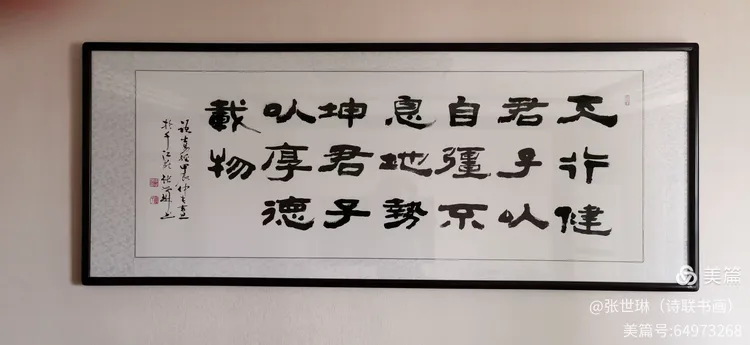 天行健
君子以
自彊不
息地勢
坤君子
以厚德
載物
美篇
@张世琳（诗联书画）
美篇号:64973268